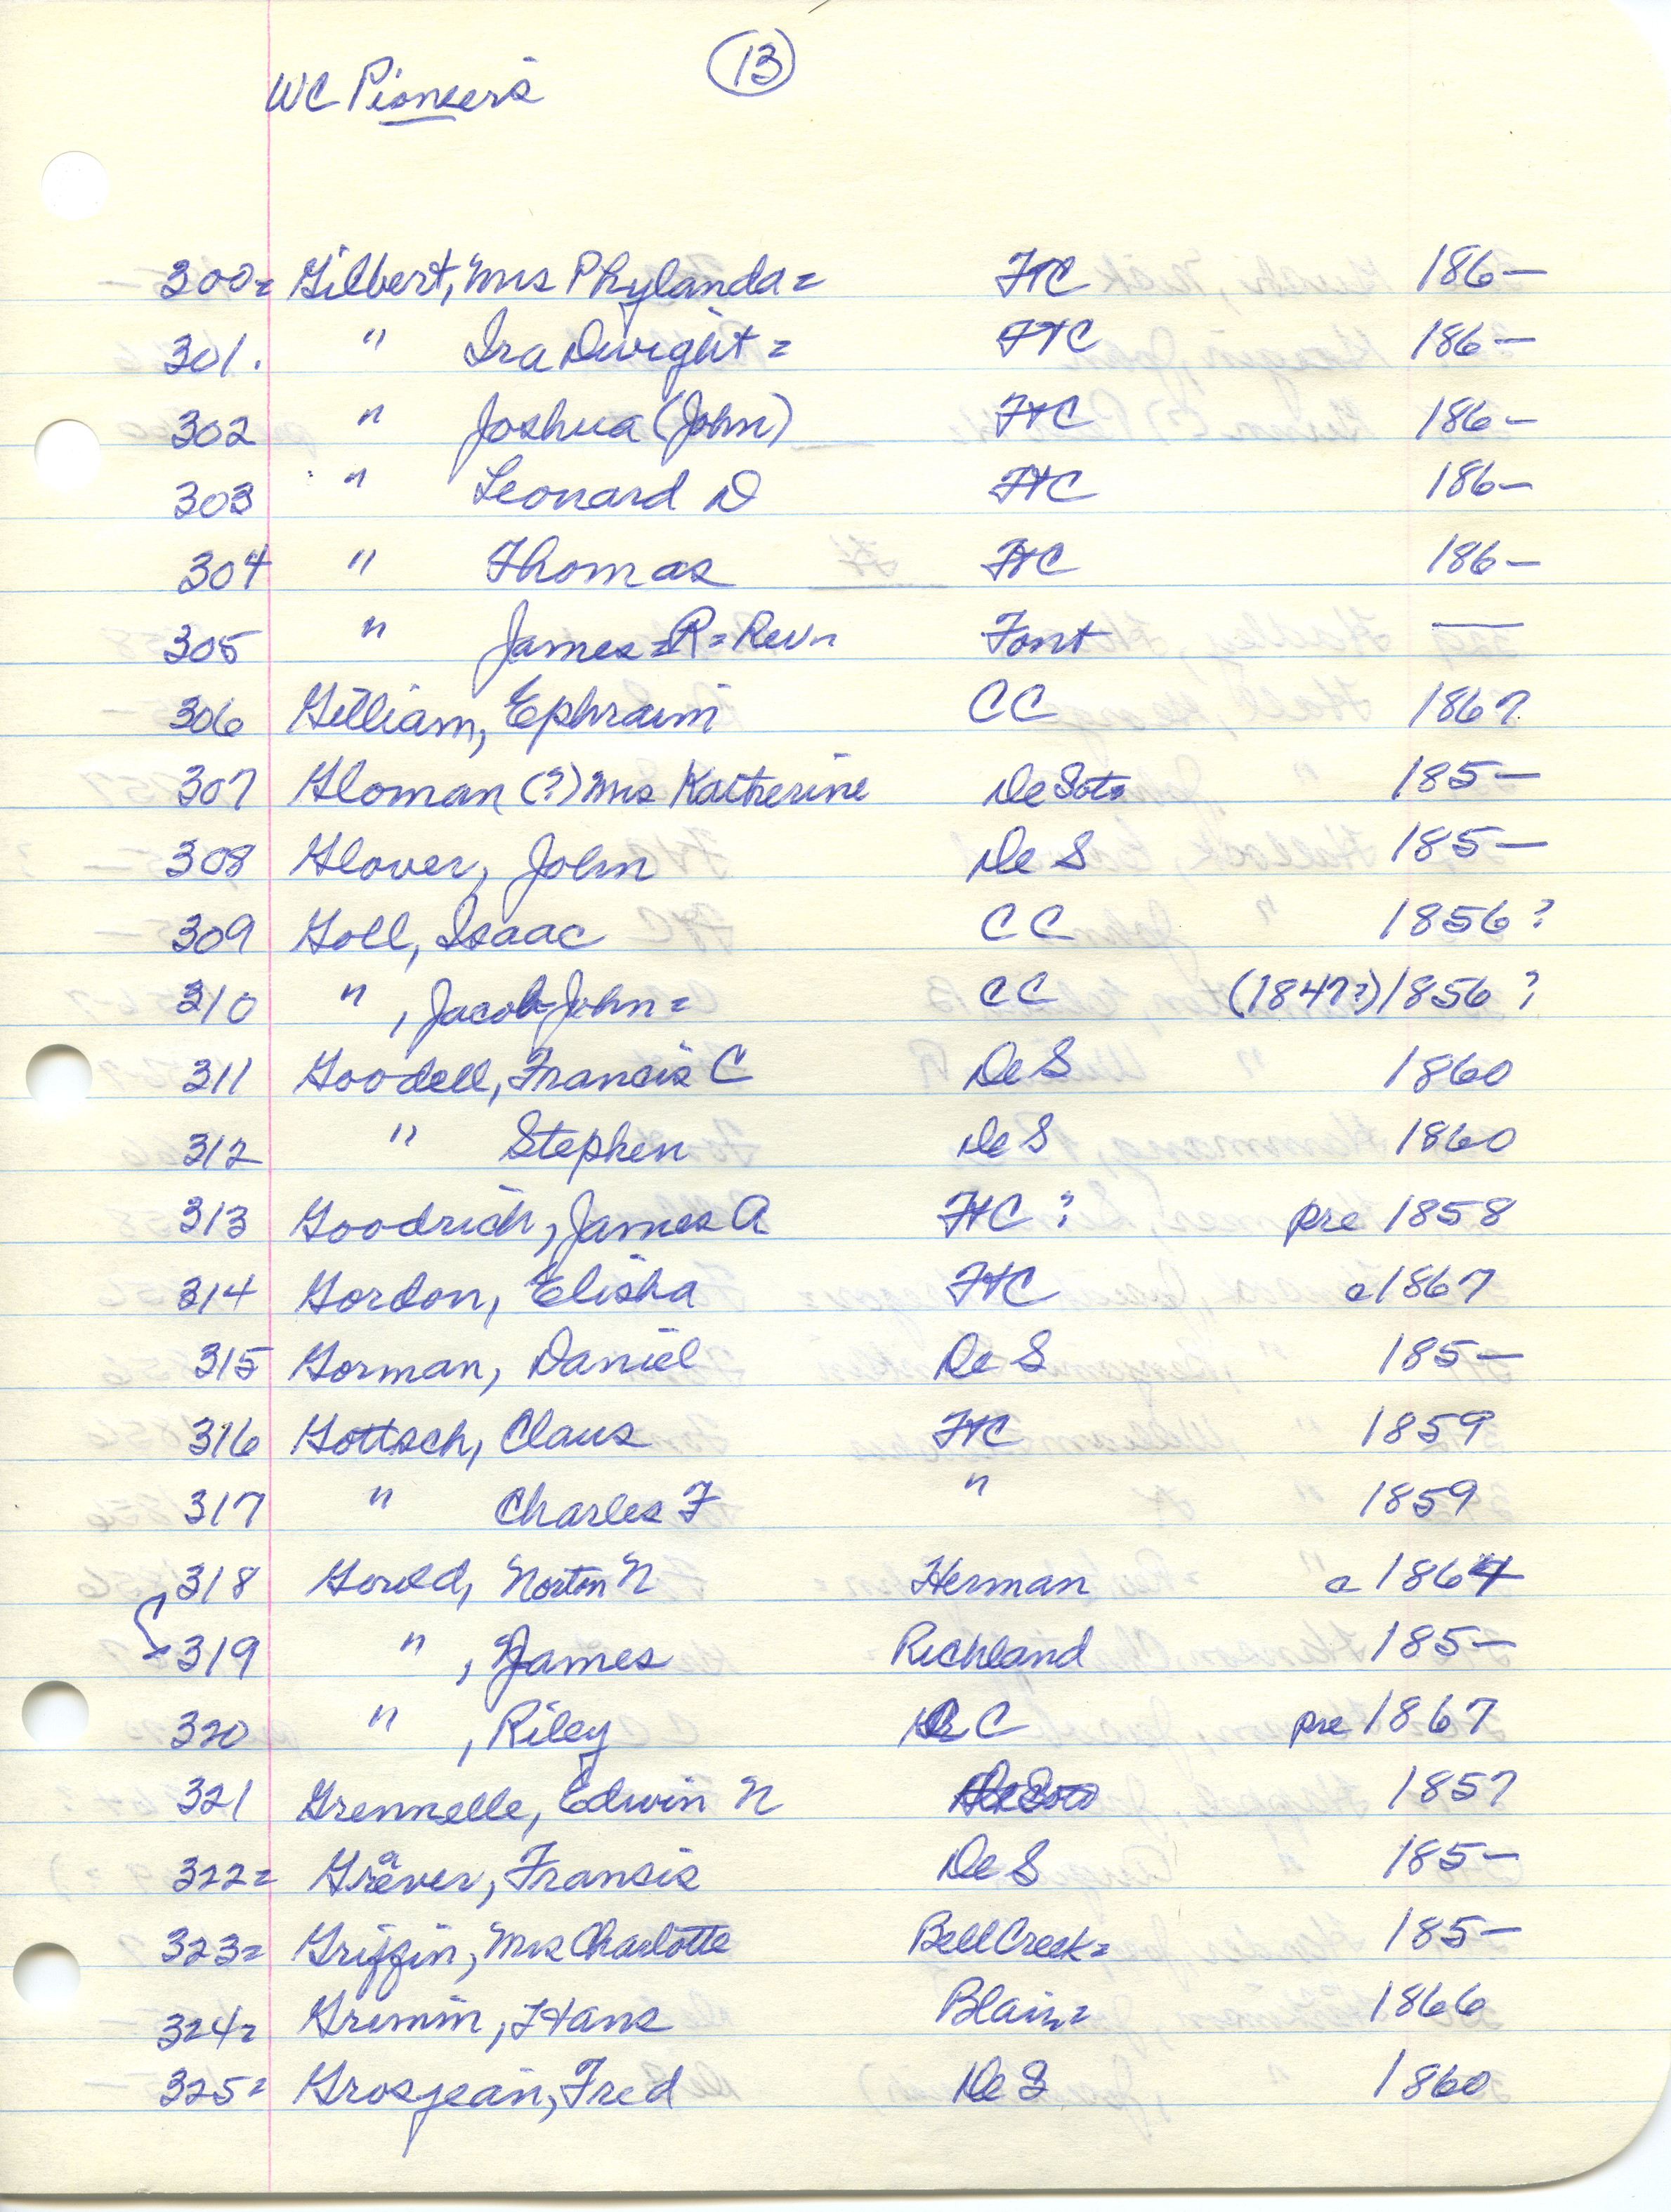 13
WC Pioneers
300= Gilbert, Mrs Phylanda = FtC 186—
301. " Ira Dwight = FTC 186—
302 " Joshua (John) FtC 186—
303 " Leonard D FtC 186—
304 " Thomas FtC 186—
305 " James =R= Rev= Font —
306 Gilliam, Ephraim CC 186?
307 Gloman (?) Mrs Katherine De Soto 185—
308 Glover, John De S 185—
309 Goll, Isaac CC 1856 ?
310 " , Jacob John = CC (184??) 1856 ?
311 Goodell, Francis C De S 1860
312 " Stephen De S 1860
313 Goodrich, James A FtC ? pre 1858
314 Gordon, Elisha FtC c1867
315 Gorman, Daniel De S 185—
316 Gottsch, Claus FtC 1859
317 " Charles F " 1859
318 Gould, Norton N Herman c 1864
319 " , James Richland 185—
320 " , Riley C pre 1867
321 Grennelle, Edwin N 1857
322= Grever, Francis De S 185—
323= Griffin, Mrs Charlotte Bell Creek = 185—
324= Grimm, Hans Blair= 1866
325= Grosjean, Fred De S 1860